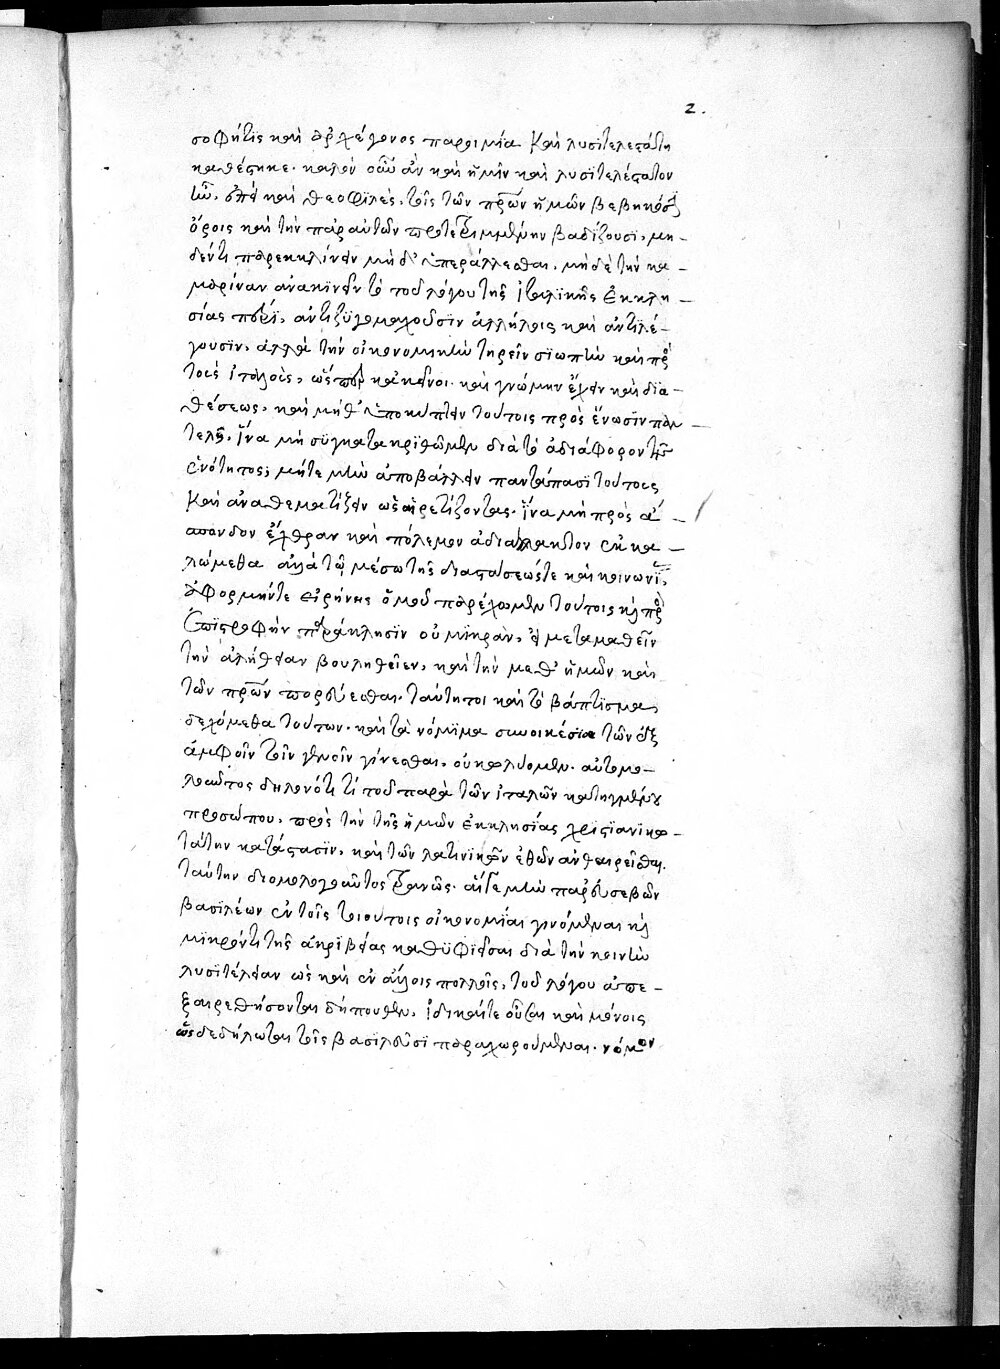 2.
σοφή τις καὶ ἀρχέγονος παροιμία καὶ λυσιτελεστάτη
καθέστηκε. καλὸν οὖν ἂν καὶ ἡμῖν καὶ λυσιτελέστατον
εἴη καὶ θεοφιλὲς, τοῖς τῶν πρῶν ἡμῶν βεβηκόσι
ὅροις καὶ τὴν παρ αὐτῶν προτετριμμένην βαδίζουσι, μη-
δέν τι παρεκκλίνειν μὴ δ' ὑπεράλλεσθαι, μὴ δὲ τὴν κα-
μαρίναν ἀνακινεῖν τὸ τοῦ λόγου τῆς ἰταλικῆς ἐκκλη-
σίας ἀντιζυγομαχοῦσιν ἀλλήλοις καὶ ἀντιλέ-
γουσιν. ἀλλὰ τὴν οἰκονομικὴν τηρεῖν σιωπὴν καὶ πρὸς
τοὺς ἰταλοὺς, ὥσπερ κἀκεῖνοι καὶ γνώμην ἔχειν καὶ δια-
θέσεως. καὶ μήθ' ὑποκύπτειν τούτοις πρὸς ἕνωσιν παν-
τελῆ. ἵνα μὴ συγκατακριθῶμεν διὰ τὸ ἀδιάφορον τῆς
ἑνότητος; μήτε μὴν ἀποβάλλειν παντάπασι τούτους
καὶ ἀναθεματίζειν ὡς αἱρετίζοντας. ἵνα μὴ πρὸς ἄ-
σπονδον ἔχθραν καὶ πόλεμον ἀδιάλλακτον ἐκκα-
λώμεθα ἀλλὰ τῷ μέσῳ τῆς διαστάσεώς τε καὶ κοινωνί,
ἀφορμήν τε εἰρήνης ὁμοῦ παρέχωμεν τούτοις καὶ πρὸς
ἐπιστροφὴν παράκλησιν οὐ μικρὰν, εἰ μεταμαθεῖν
τὴν ἀλήθειαν βουληθεῖεν, καὶ τὴν μεθ' ἡμῶν καὶ
τῶν πρῶν πορεύεσθαι. ταύτῃ τοι καὶ τὸ βάπτισμα
δεχόμεθα τούτων. καὶ τὰ νόμιμα συνοικέσια τῶν ἐξ
ἀμφοῖν τοῖν γενοῖν γίνεσθαι, οὐ κωλύομεν. αὐτομο-
λοῦντος δηλονότι τοῦ παρὰ τῶν ἰταλῶν κατηγμένου
προσώπου, πρὸς τὴν τῆς ἡμῶν ἐκκλησίας χριστιανικω-
τάτην κατάστασιν, καὶ τῶν λατινικῶν ἐθῶν ἀνθαιρεῖσθαι
ταύτην διομολογοῦντος τρανῶς. αἵ γε μὴν παρ εὐσεβῶν
βασιλέων ἐν τοῖς τοιούτοις οἰκονομίαι γινόμεναι καὶ
μικρόν τι τῆς ἀκριβείας καθυφιεῖσαι διὰ τὴν κοινὴν
λυσιτέλειαν ὡς καὶ ἐν ἄλλοις πολλοῖς, τοῦ λόγου ὑπε-
ξαιρεθήσονται δήπουθεν. ἰδικαί τε οὖσαι καὶ μόνοις
ὡς δεδήλωται τοῖς βασιλεῦσι παραχωρούμεναι. νόμον